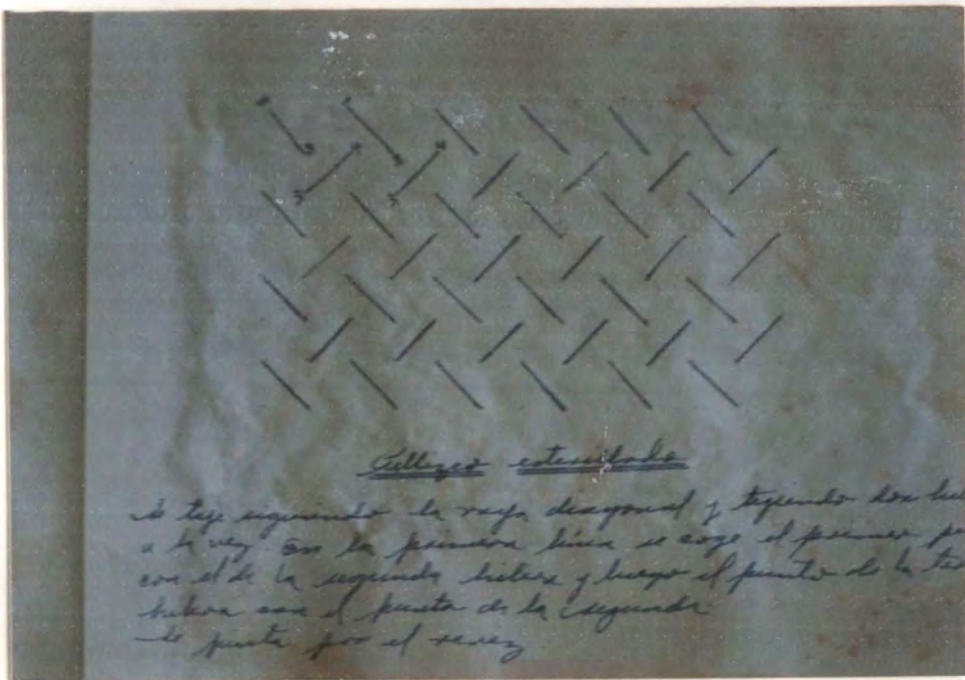 esterillado
Se teje siguiendo la raya diagonal y tejiendo dos
a la vez. En la primera linea se coge el primer
con el de la segunda hilera y luego el punto de la
hilera con el punto de la segunda
Se punta por el revez